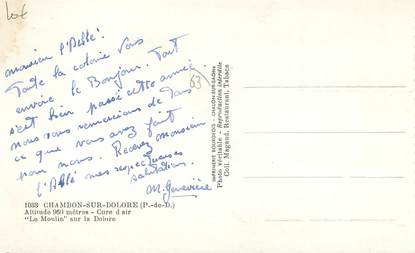 10€
Monsieur l'Abbé.
Toute la colonie vous
envoie le Bonjour. Tout
s'est bien passé cette année
nous vous remercions de tous
ce que vous avez fait
pour nous. Recevez Monsieur
l'Abbé mes respectueuses
salutations.
M. Geneviève
63
1033 CHAMBON-SUR-DOLORE (P.-de-D.)
Altitude 960 mètres - Cure d'air
"Le Moulin" sur la Dolore
IMPRIMERIE BOURGEOIS - CHALON-SUR-SAONE
Photo véritable - Reproduction interdite
Coll. Magaud, Restaurant, Tabacs